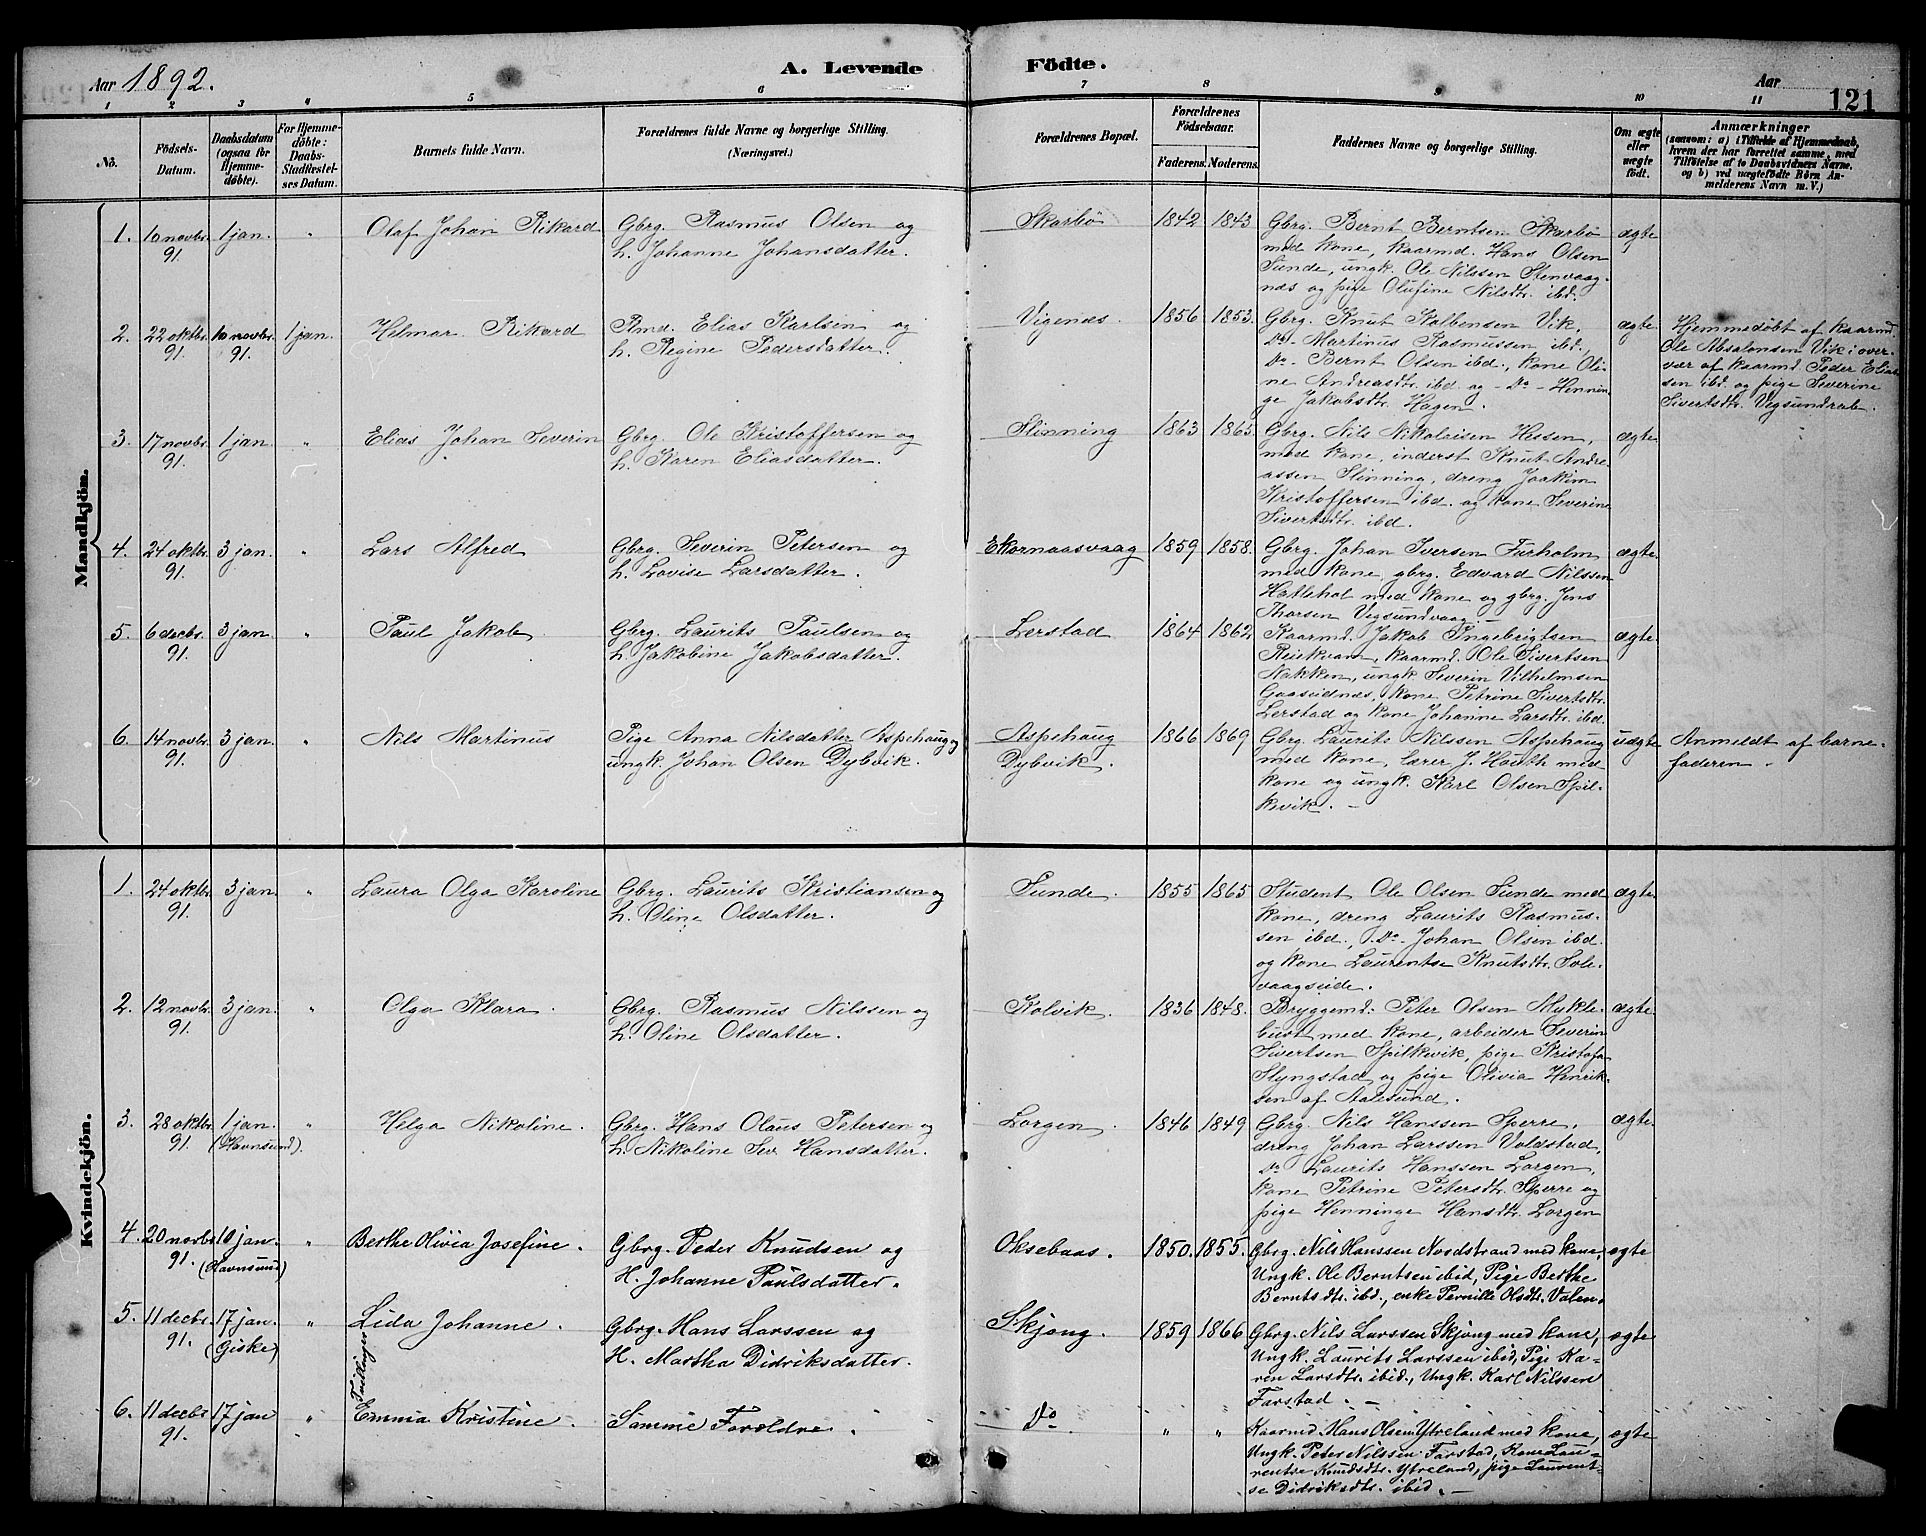 Aar 1892. A. Levende Födte. Aar 121
1 2 3 4 5 6 7 8 9 10 11
No. Födsels-Datum. Daabsdatum (ogsaa for Hjemmedöbte). For Hjemmedöbte: Daabs-Stadfæstelses Datum. Barnets fulde Navn. Forældrenes fulde Navne og borgerlige Stilling. (Næringsvei.) Forældrenes Bopæl. Forældrenes Födselsaar. Faderens. Moderens. Faddernes Navne og borgerlige Stilling. Om ægte eller uægte födt. Anmærkninger (saasom: a) i Tilfælde af Hjemmedaab, hvem der har forrettet samme, med Tilföielse af to Daabsvidners Navne, og b) ved uægtefödte Börn Anmelderens Navn m. V.)
Mandkjön.
1. 10 novbr. 1 jan. " Olaf Johan Rikard Gbrg. Rasmus Olsen og Skarbö 1842 1843 Gbrg. Bernt Berntsen Skarbö ægte
91. h. Johanne Johansdatter. med kone, kaarmd. Hans Olsen
Sunde, ungk. Ole Nilssen Stenvaag-
næs og pige Olufine Nilsdtr. ibd.
2. 22 oktbr. 10 novbr. 1 jan. Hilmar Rikard Rmd. Elias Karlsen og Vigenæs. 1856 1853. Gbrg. Knut Kolbensen Vik, ægte Hjemmedöbt af kaarmd.
91. 91. h. Regine Pedersdatter. Do - Martinus Rasmussen ibd., Ole Absalonsen Vik i over-
Do - Bernt Olsen ibd., kone Oli- vær af kaarmd. Peder Elias-
ne Andreasdtr. ibd. og - Do - Hennin- sen ibd. og pige Severine
ge Jakobsdtr. Hagen. Sivertsdtr. Vegsundreb.
3. 17 novbr. 1 jan. " Elias Johan Severin Gbrg. Ole Kristoffersen og Slinning 1863 1865. Gbrg. Nils Nikolaisen Hessen, ægte
91. h. Karen Eliasdatter. med kone, inderst Knut Andre-
assen Slinning, dreng Joakim
Kristoffersen ibd. og kone Severine
Sivertsdtr. ibd.
4. 24 oktbr. 3 jan. " Lars Alfred Gbrg. Severin Petersen og Ekornaasvaag 1859 1858. Gbrg. Johan Iversen Furholm ægte
91. h. Lovise Larsdatter. med kone, gbrg. Edvard Nilssen
Hatlehol med kone og gbrg. Jens
Thorsen Vegsundvaag. -
5. 6 decbr. 3 jan. " Paul Jakob. Gbrg. Laurits Paulsen og Lerstad 1864 1862 Kaarmd. Jakob Ingebrigtsen ægte
91. h. Jakobine Jakobsdatter. Reiekvam, kaarmd. Ole Sivertsen
Nakken, ungk. Severin Vilhelmsen
Gaaseidnæs, kone Petrine Sivertsdtr.
Lerstad og kone Johanne Larsdtr. ibd.
6. 14 novbr. 3 jan. " Nils Martinus Pige Anna Nilsdatter Aspehaug og Aspehaug 1866 1869 Gbrg. Laurits Nilssen Aspehaug uægte Anmeldt af barne-
91. ungk. Johan Olsen Dybvik. Dybvik. med kone, lærer J. Houth med faderen.
kone og ungk. Karl Olsen Spil-
kvik. -
Kvindekjön.
1. 24 oktbr. 3 jan. " Laura Olga Karoline Gbrg. Laurits Kristiansen og Sunde. 1855 1865 Student Ole Olsen Sunde med ægte.
91. h. Oline Olsdatter. kone, dreng Laurits Rasmus-
sen ibd., Do - Johan Olsen ibd.
og kone Laurentse Knutsdtr. Sole-
vaagseide.
2. 12 novbr. 3 jan. " Olga Klara. Gbrg. Rasmus Nilssen og Kolvik. 1836 1848. Bryggemd. Peter Olsen Mykle- ægte.
91. h. Oline Olsdatter. bust med kone, arbeider Severin
Sivertsen Spilkvik, pige Kristofa
Slyngstad og pige Olivia Henrik-
sen af Aalesund.
3. 28 oktbr. 1 jan. " Helga Nikoline. Gbrg. Hans Olaus Petersen og Lorgen. 1846 1849 Gbrg. Nils Hanssen Sperre, ægte.
91. (Havnsund). h. Nikoline Sev. Hansdatter. dreng Johan Larssen Voldstad,
Do Laurits Hanssen Lorgen,
kone Petrine Petersdtr. Sperre og
pige Henninge Hansdtr. Lorgen
4. 20 novbr. 10 jan. " Berthe Olivia Josefine. Gbrg. Peder Knudsen og Oksebaas. 1850. 1855. Gbrg. Nils Hanssen Nordstrand med kone, ægte
91. (Havnsund) H. Johanne Paulsdatter. Ungk. Ole Berntsen ibid, Pige Berthe
Berntsdtr. ibd., enke Pernille Olsdtr. Valen.
5. 11 decbr. 17 jan. " Lida Johanne. Gbrg. Hans Larssen og Skjong. 1859 1866. Gbrg. Nils Larssen Skjong med kone, ægte
91. (Giske) H. Martha Didriksdatter. Ungk. Laurits Larssen ibid, Pige Ka-
ren Larsdtr. ibid., Ungk. Karl Nilssen
Farstad. -
Tvillinger
6. 11 decbr. 17 jan " Emma Kristine. Samme Forældre. Do. " " Kaarmd. Hans Olsen Ytreland med kone, ægte
91. Ungk. Peder Nilssen Farstad, Kone Lau-
rentse Knudsdtr. Ytreland, pige Laurent-
se Didriksdtr. ibid. -